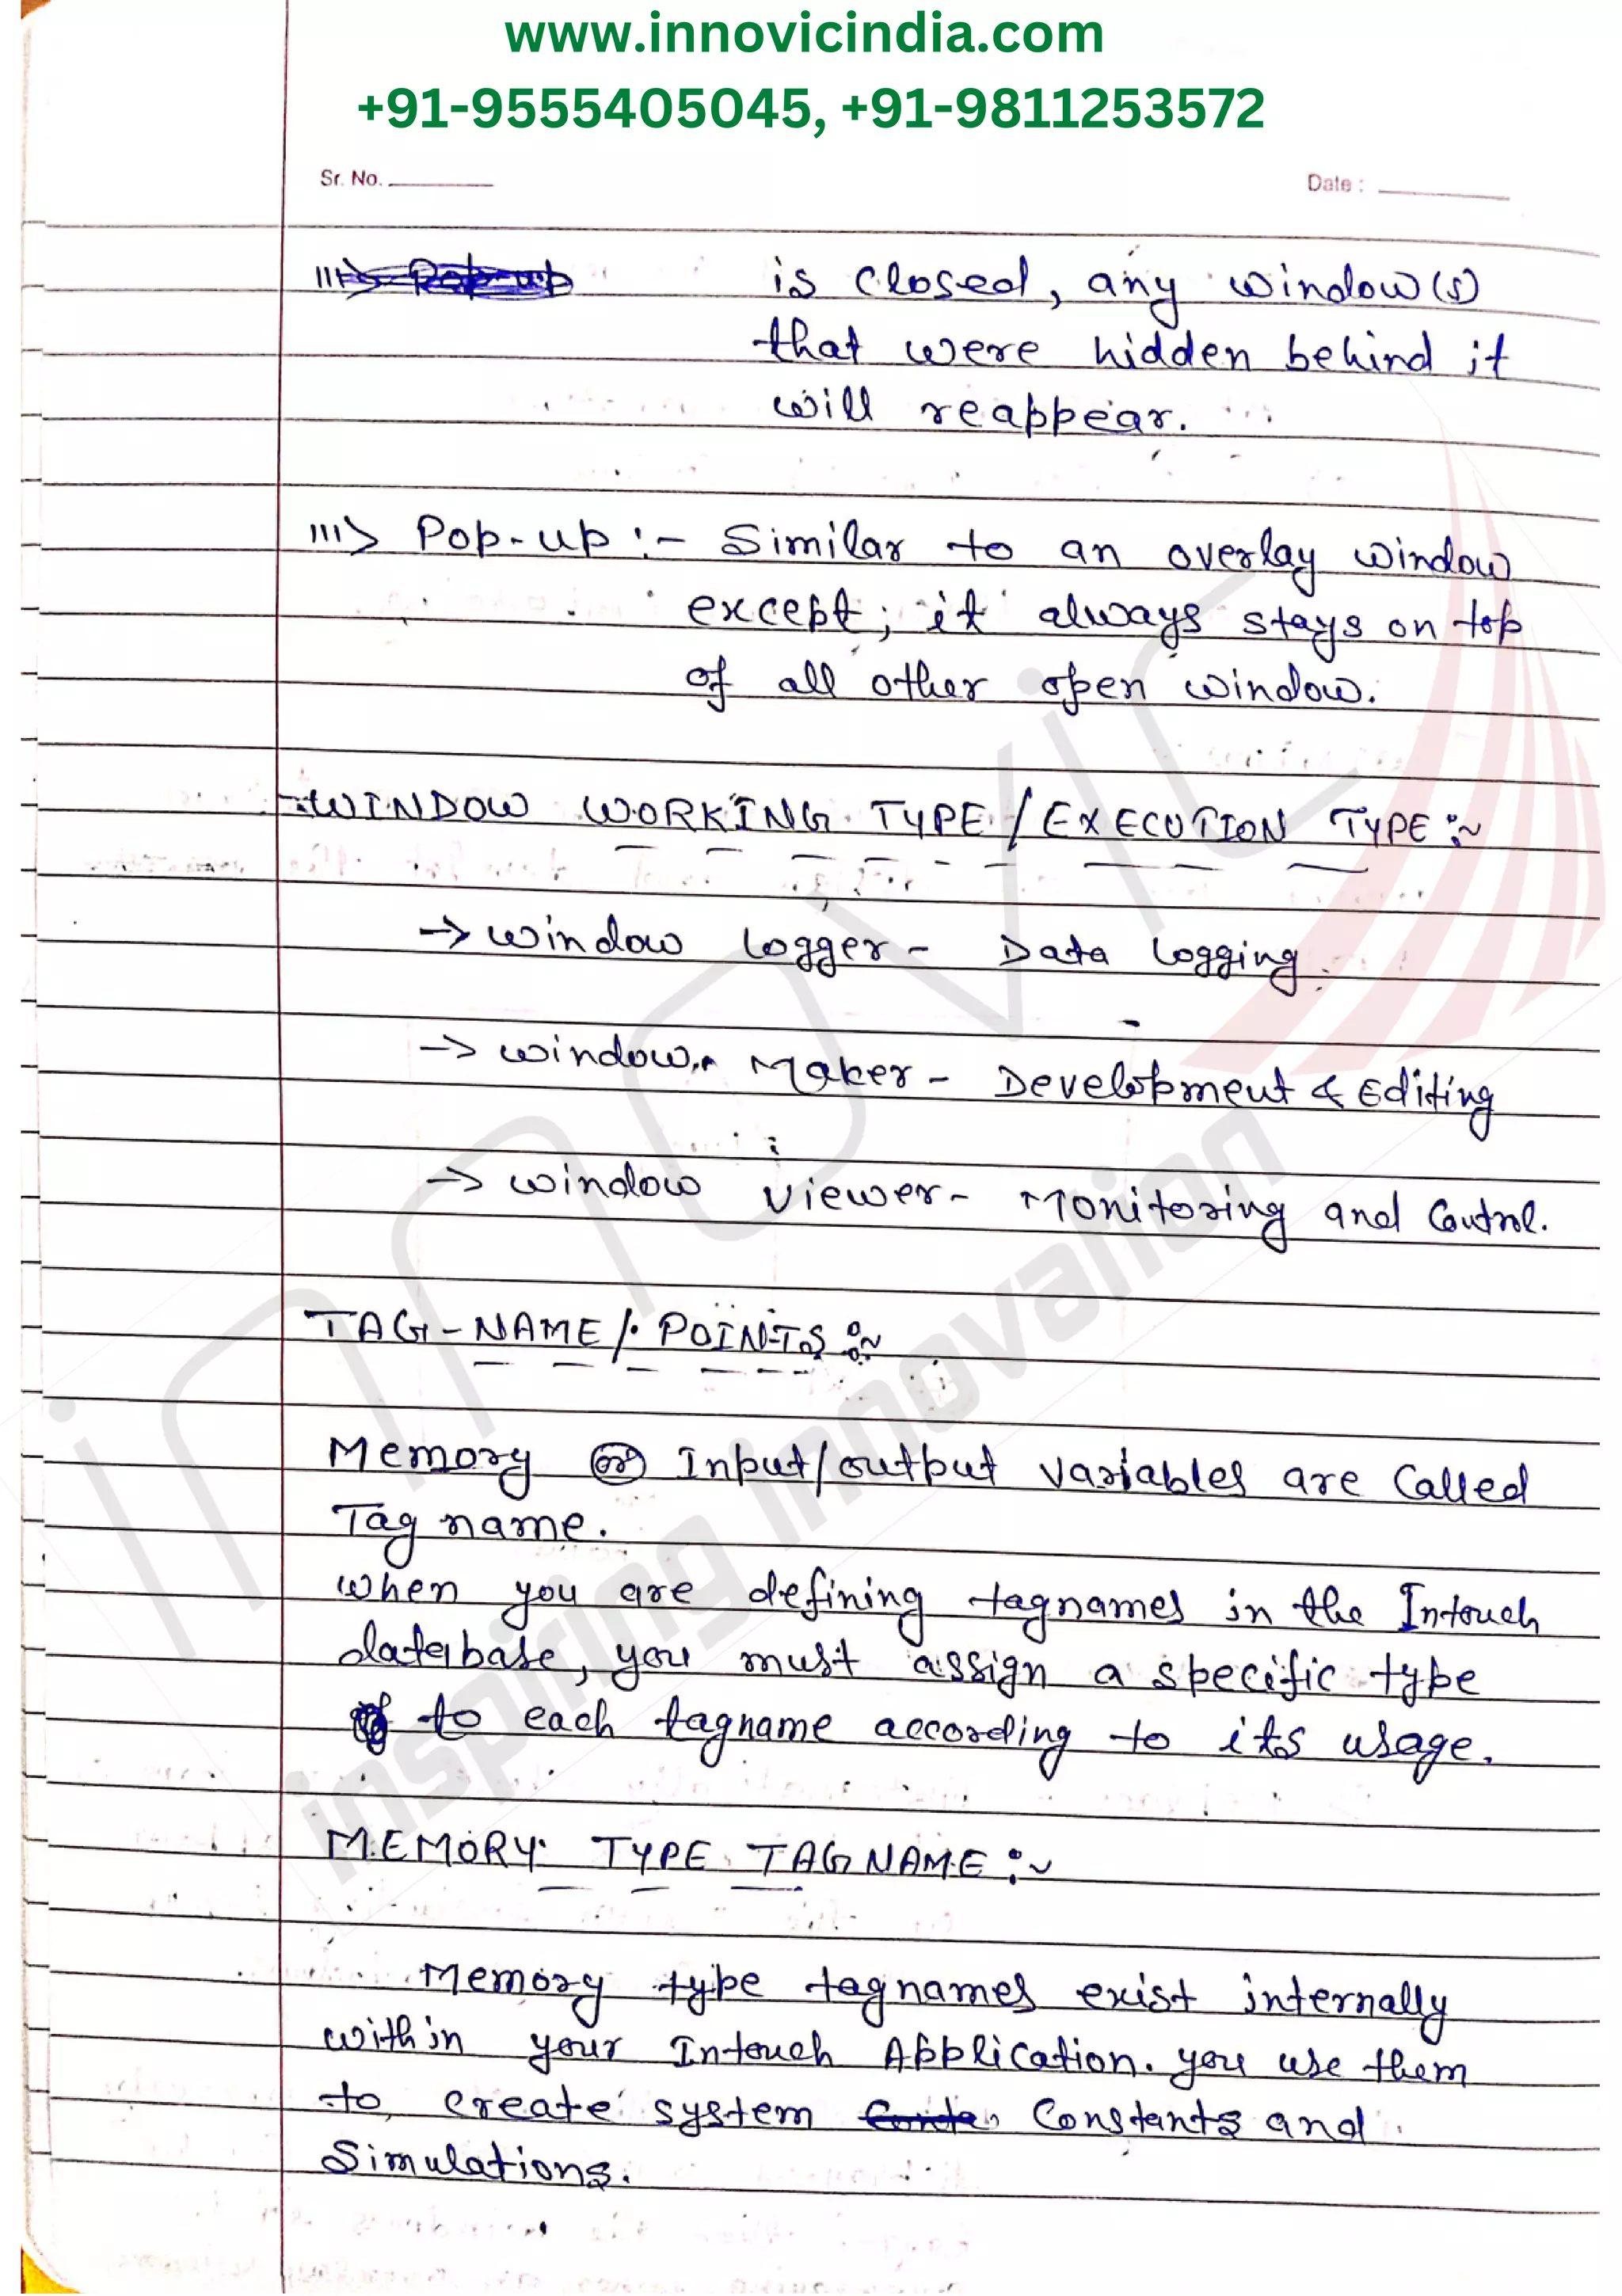 www.innovicindia.com
+91-9555405045, +91-9811253572
Sr. No.
Date :
is closed, any window(s)
that were hidden behind it
will reappear.
III> Pop-up :- Similar to an overlay window
except, it always stays on top
of all other open window.
WINDOW WORKING TYPE / EXECUTION TYPE :~
→ window logger - Data logging.
→ window Maker - Development & Editing
→ window viewer - Monitoring and Control.
TAG-NAME / POINTS :~
Memory or Input/output variables are Called
Tag name.
when you are defining tagnames in the Intouch
database, you must assign a specific type
to each tagname according to its usage.
MEMORY TYPE TAGNAME :~
Memory type tagnames exist internally
within your Intouch Application. you use them
to create system Constants and
Simulations.
innovic
inspiring innovation